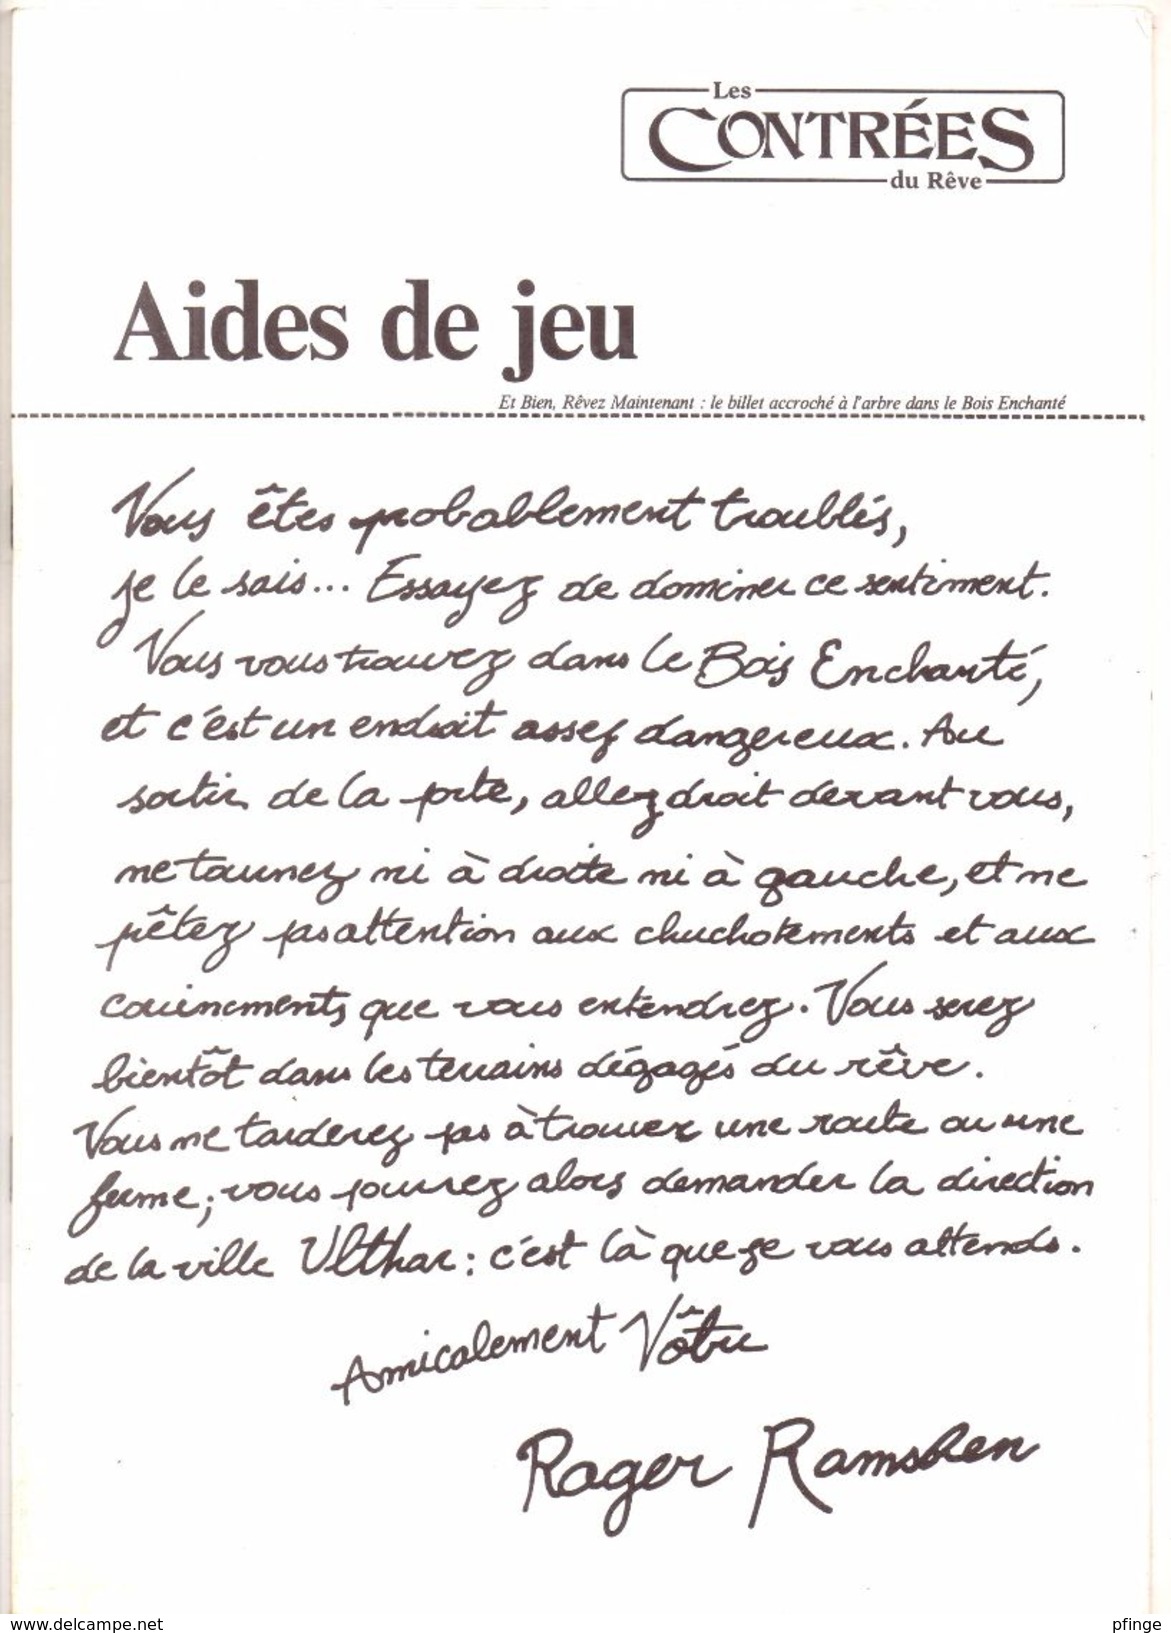 Les
CONTRÉES
du Rêve
Aides de jeu
Et Bien, Rêvez Maintenant : le billet accroché à l'arbre dans le Bois Enchanté
Vous êtes probablement troublés,
je le sais... Essayez de dominer ce sentiment.
Vous vous trouvez dans le Bois Enchanté,
et c'est un endroit assez dangereux. Au
sortir de la pite, allez droit devant vous,
ne tournez ni à droite ni à gauche, et ne
pêtez pas attention aux chuchotements et aux
couinements que vous entendrez. Vous serez
bientôt dans les terrains dégagés du rêve.
Vous ne tarderez pas à trouver une route ou une
ferme; vous pourrez alors demander la direction
de la ville Ulthar : c'est là que je vous attends.
Amicalement Vôtre
Roger Ramshen
www.delcampe.net
pfinge